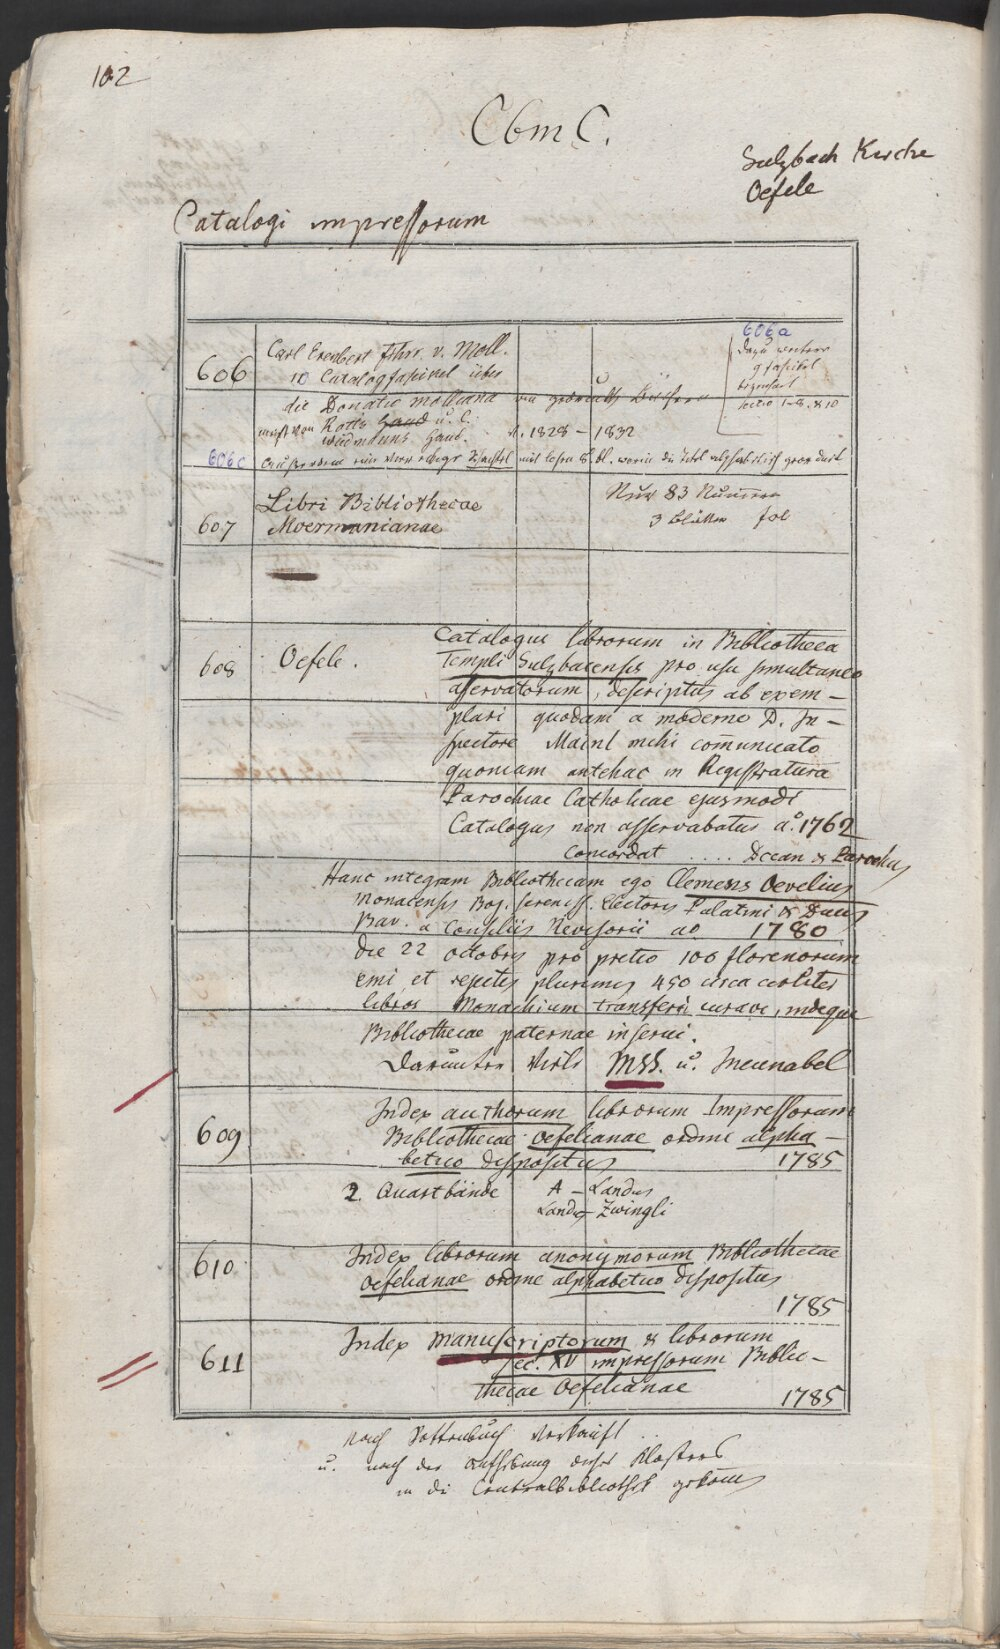 102
Cbm C.
Sulzbach Kirche
Oefele
Catalogi impressorum
606a
606
Carl Erenbert Frhr. v. Moll.
10 Catalogfascikel über
dazu weitere
9 fascikel
die Donatio Molliana von gedruckten Büchern
sectio 1-8. & 10
meist von Rotts Hand u. C.
Widmanns Hand. 1828 - 1832
606c
mit losen 8° bl. worin die Titel alphabetisch geordnet
607
Libri Bibliothecae
Moermanianae
Nur 83 Nummern
3 Blätter fol
608
Oefele.
Catalogus librorum in Bibliotheca
Templi Sulzbacensis pro usu simultaneo
asservatorum, descriptus ab exem-
plari quodam a moderno D. In-
spectore Mainl mihi communicato
quoniam antehac in Registratura
Parochiae Catholicae ejusmodi
Catalogus non asservabatur aº. 1762
Concordat .... Decan & Parochus
Hanc integram Bibliothecam ego Clemens Oevelius
Monacensis Boj. sereniss. Electoris Palatini & Ducis
Bav. a Consiliis Revisorii ao 1780
die 22 octobris pro pretio 100 florenorum
emi et rejectis plurimis 450 circa
libros Monachium transferri curavi, indeque
Bibliothecae paternae inserui.
Darunter viele MSS. u. Incunabel
609
Index authorum librorum Impressorum
Bibliothecae Oefelianae ordine alpha-
betico dispositus 1785
2 Quartbände A - Landus
Landus - Zwingli
610
Index librorum anonymorum Bibliothecae
Oefelianae ordine alphabetico dispositus
1785
611
Index manuscriptorum & librorum
sec. XV impressorum Biblio-
thecae Oefelianae
1785
nach Rottenbuch verkauft
u. nach der Aufhebung dieses Klosters
in die Centralbibliothek gekommen